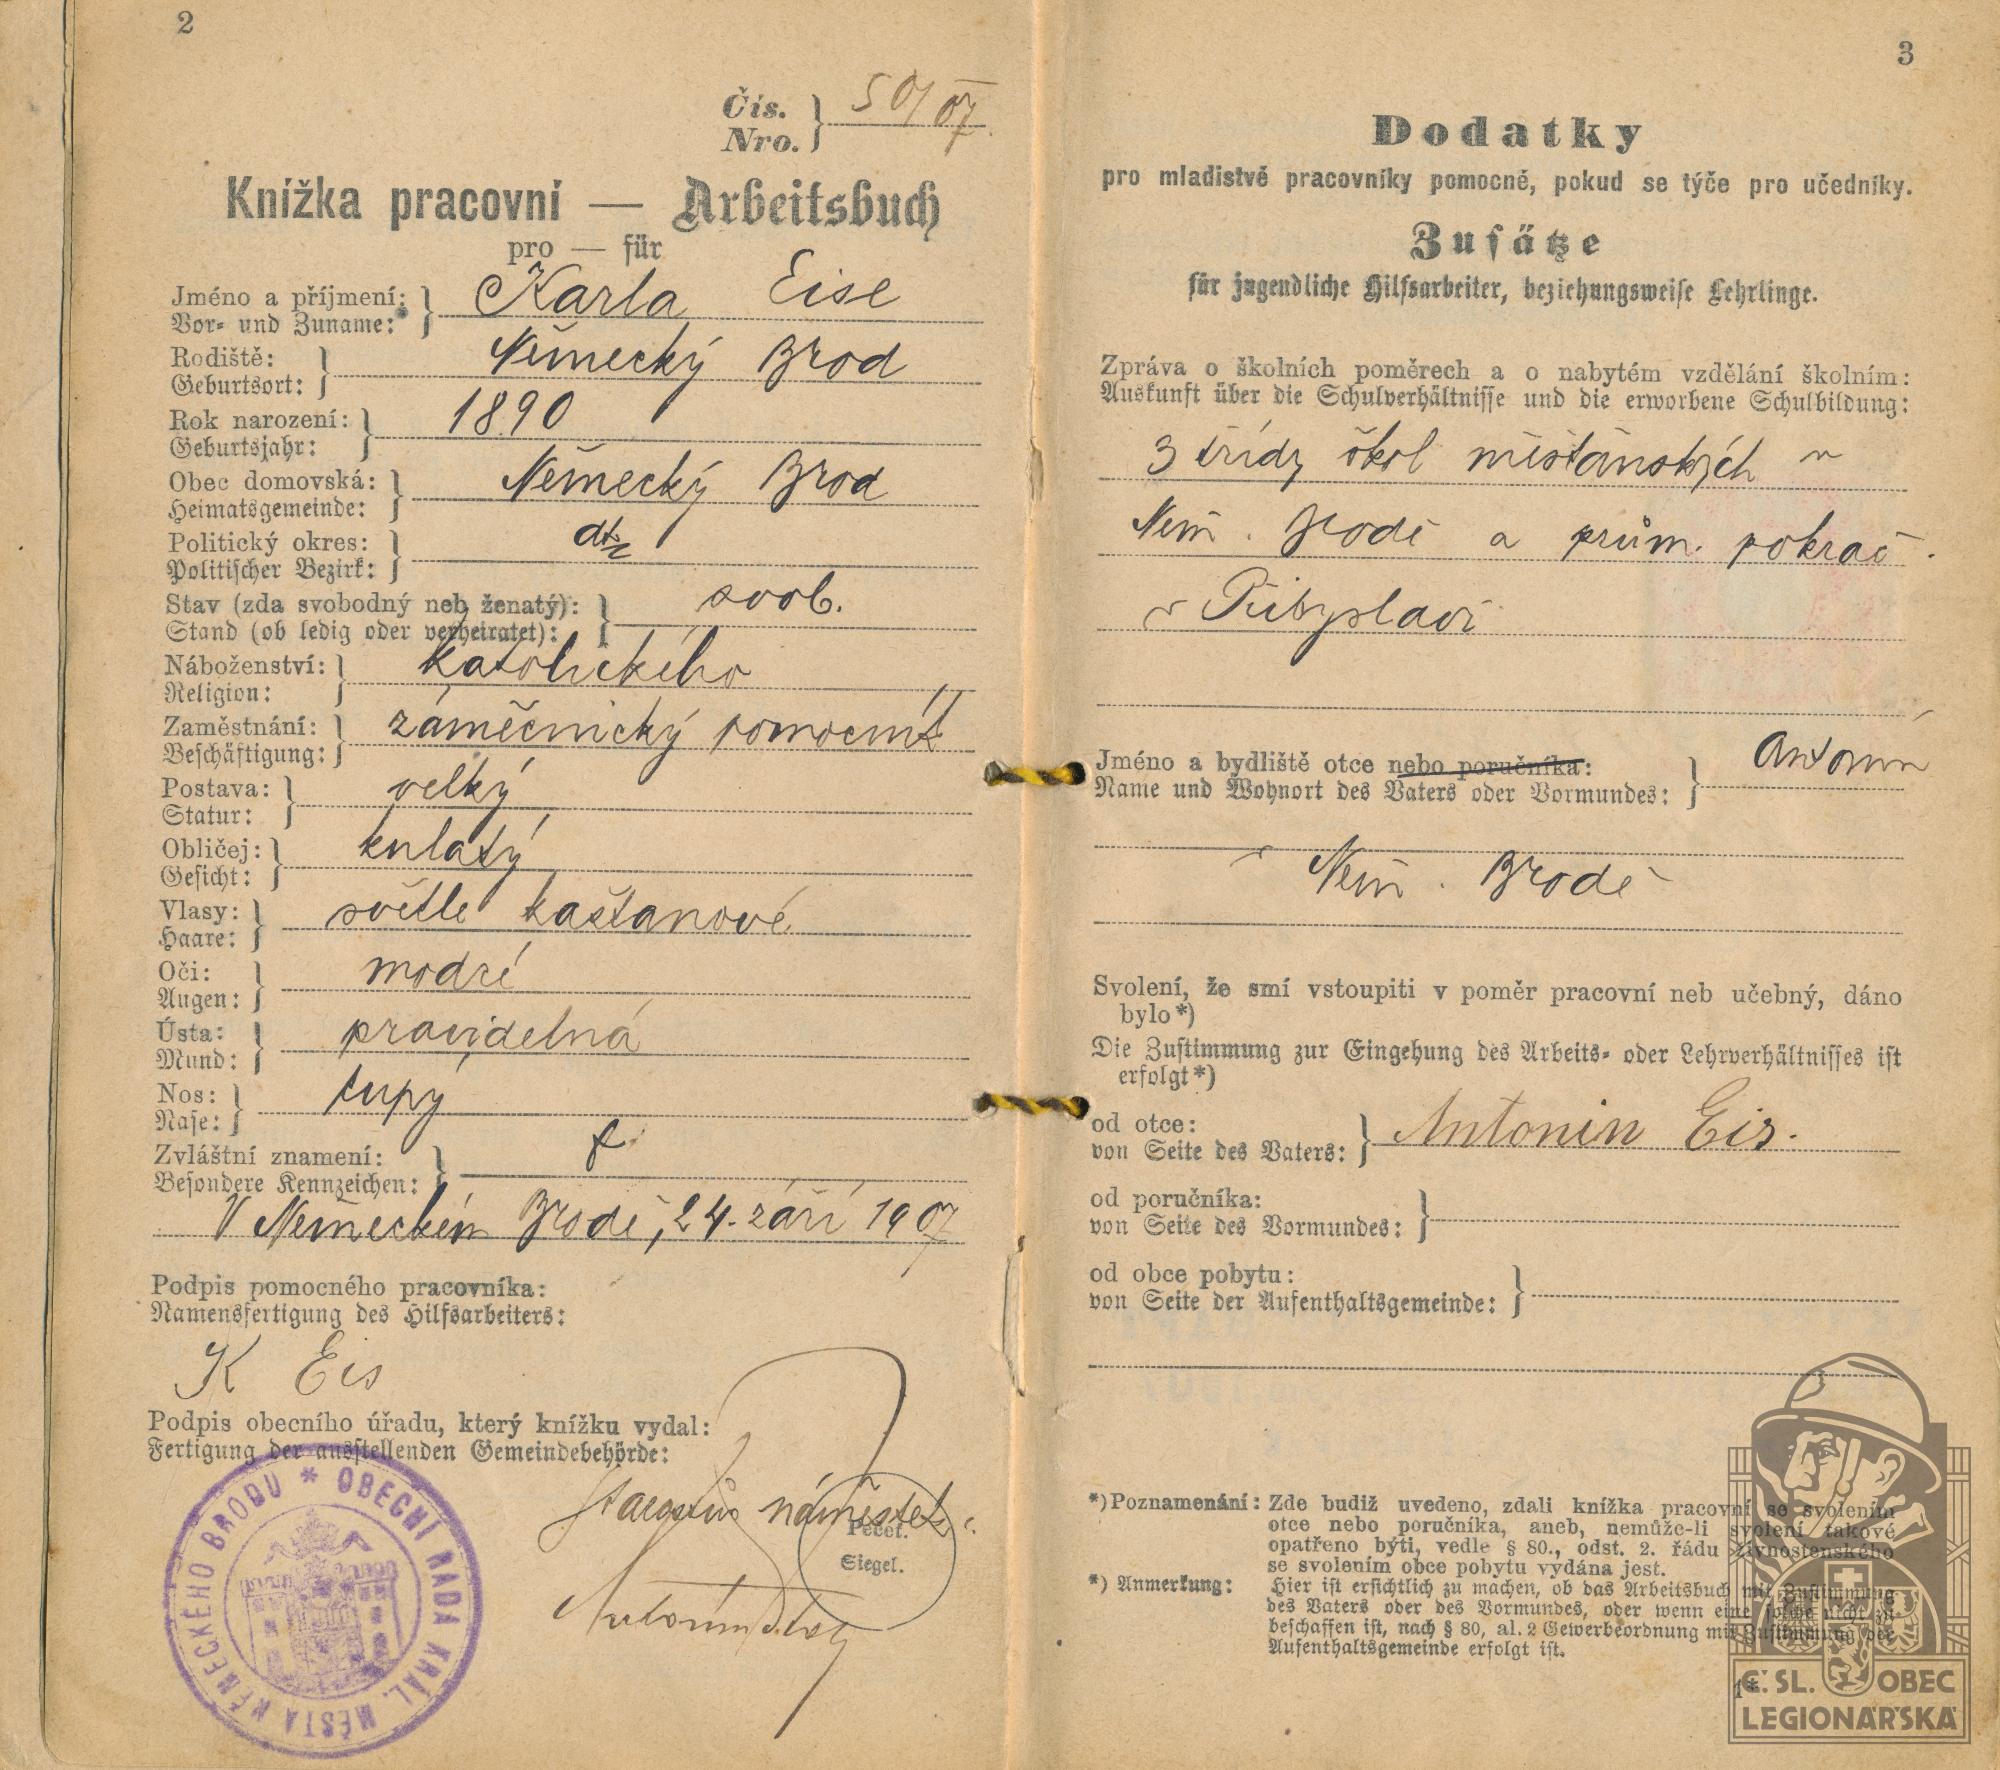 2
Čís.
Nro. } 50/07
Knížka pracovní — Arbeitsbuch
pro — für
Jméno a příjmení:
Vor- und Zuname: } Karla Eise
Rodiště:
Geburtsort: } Německý Brod
Rok narození:
Geburtsjahr: } 1890
Obec domovská:
Heimatsgemeinde: } Německý Brod
Politický okres:
Politischer Bezirk: } dto
Stav (zda svobodný neb ženatý):
Stand (ob ledig oder verheiratet): } svob.
Náboženství:
Religion: } katolického
Zaměstnání:
Beschäftigung: } zámečnický pomocník
Postava:
Statur: } velký
Obličej:
Gesicht: } kulatý
Vlasy:
Haare: } světle kaštanové
Oči:
Augen: } modré
Ústa:
Mund: } pravidelná
Nos:
Nase: } tupý
Zvláštní znamení:
Besondere Kennzeichen: }
V Německém Brodě, 24. září 1907
Podpis pomocného pracovníka:
Namensfertigung des Hilfsarbeiters:
K Eis
Podpis obecního úřadu, který knížku vydal:
Fertigung der ausstellenden Gemeindebehörde:
náměstek
Pečeť.
Siegel.
Antonín
* OBECNÍ RADA KRÁL. MĚSTA NĚMECKÉHO BRODU
3
Dodatky
pro mladistvé pracovníky pomocné, pokud se týče pro učedníky.
Zusätze
für jugendliche Hilfsarbeiter, beziehungsweise Lehrlinge.
Zpráva o školních poměrech a o nabytém vzdělání školním:
Auskunft über die Schulverhältnisse und die erworbene Schulbildung:
3 třídy škol měšťanských v
Něm. Brodě a prům. pokrač.
v Přibyslavi
Jméno a bydliště otce nebo poručníka:
Name und Wohnort des Vaters oder Vormundes: } Antonín
v Něm. Brodě
Svolení, že smí vstoupiti v poměr pracovní neb učebný, dáno
bylo*)
Die Zustimmung zur Eingehung des Arbeits- oder Lehrverhältnisses ist
erfolgt*)
od otce:
von Seite des Vaters: } Antonin Eis.
od poručníka:
von Seite des Vormundes: }
od obce pobytu:
von Seite der Aufenthaltsgemeinde: }
*) Poznamenání: Zde budiž uvedeno, zdali knížka pracovní se svolením
otce nebo poručníka, aneb, nemůže-li svolení takové
opatřeno býti, vedle § 80., odst. 2. řádu živnostenského
se svolením obce pobytu vydána jest.
*) Anmerkung: Hier ist ersichtlich zu machen, ob das Arbeitsbuch mit Zustimmung
des Vaters oder des Vormundes, oder wenn eine solche nicht zu
beschaffen ist, nach § 80, al. 2 Gewerbeordnung mit Zustimmung der
Aufenthaltsgemeinde erfolgt ist.
1*
Č. SL. OBEC
LEGIONÁŘSKÁ